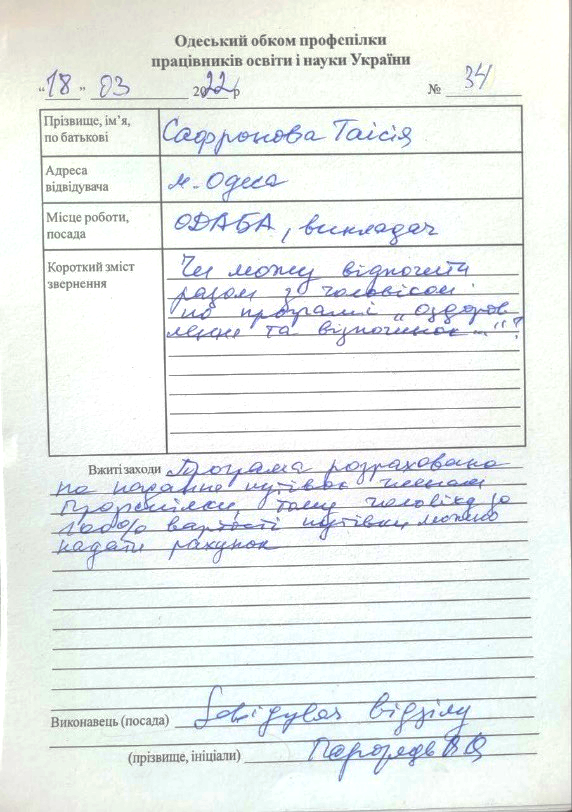 Одеський обком профспілки
працівників освіти і науки України
"18" 03 2022р № 34
Прізвище, ім'я, по батькові Сафронова Таісія
Адреса відвідувача м. Одеса
Місце роботи, посада ОДАБА, викладач
Короткий зміст звернення Чи можу відпочити
разом з чоловіком
по програмі „оздоров
лення та відпочинок..."?
Вжиті заходи Програма розрахована
на надання путівок членам
Профспілки, тому чоловіку за
100% вартості путівки можно
надати рахунок
Виконавець (посада) Завідувач відділу
(прізвище, ініціали)